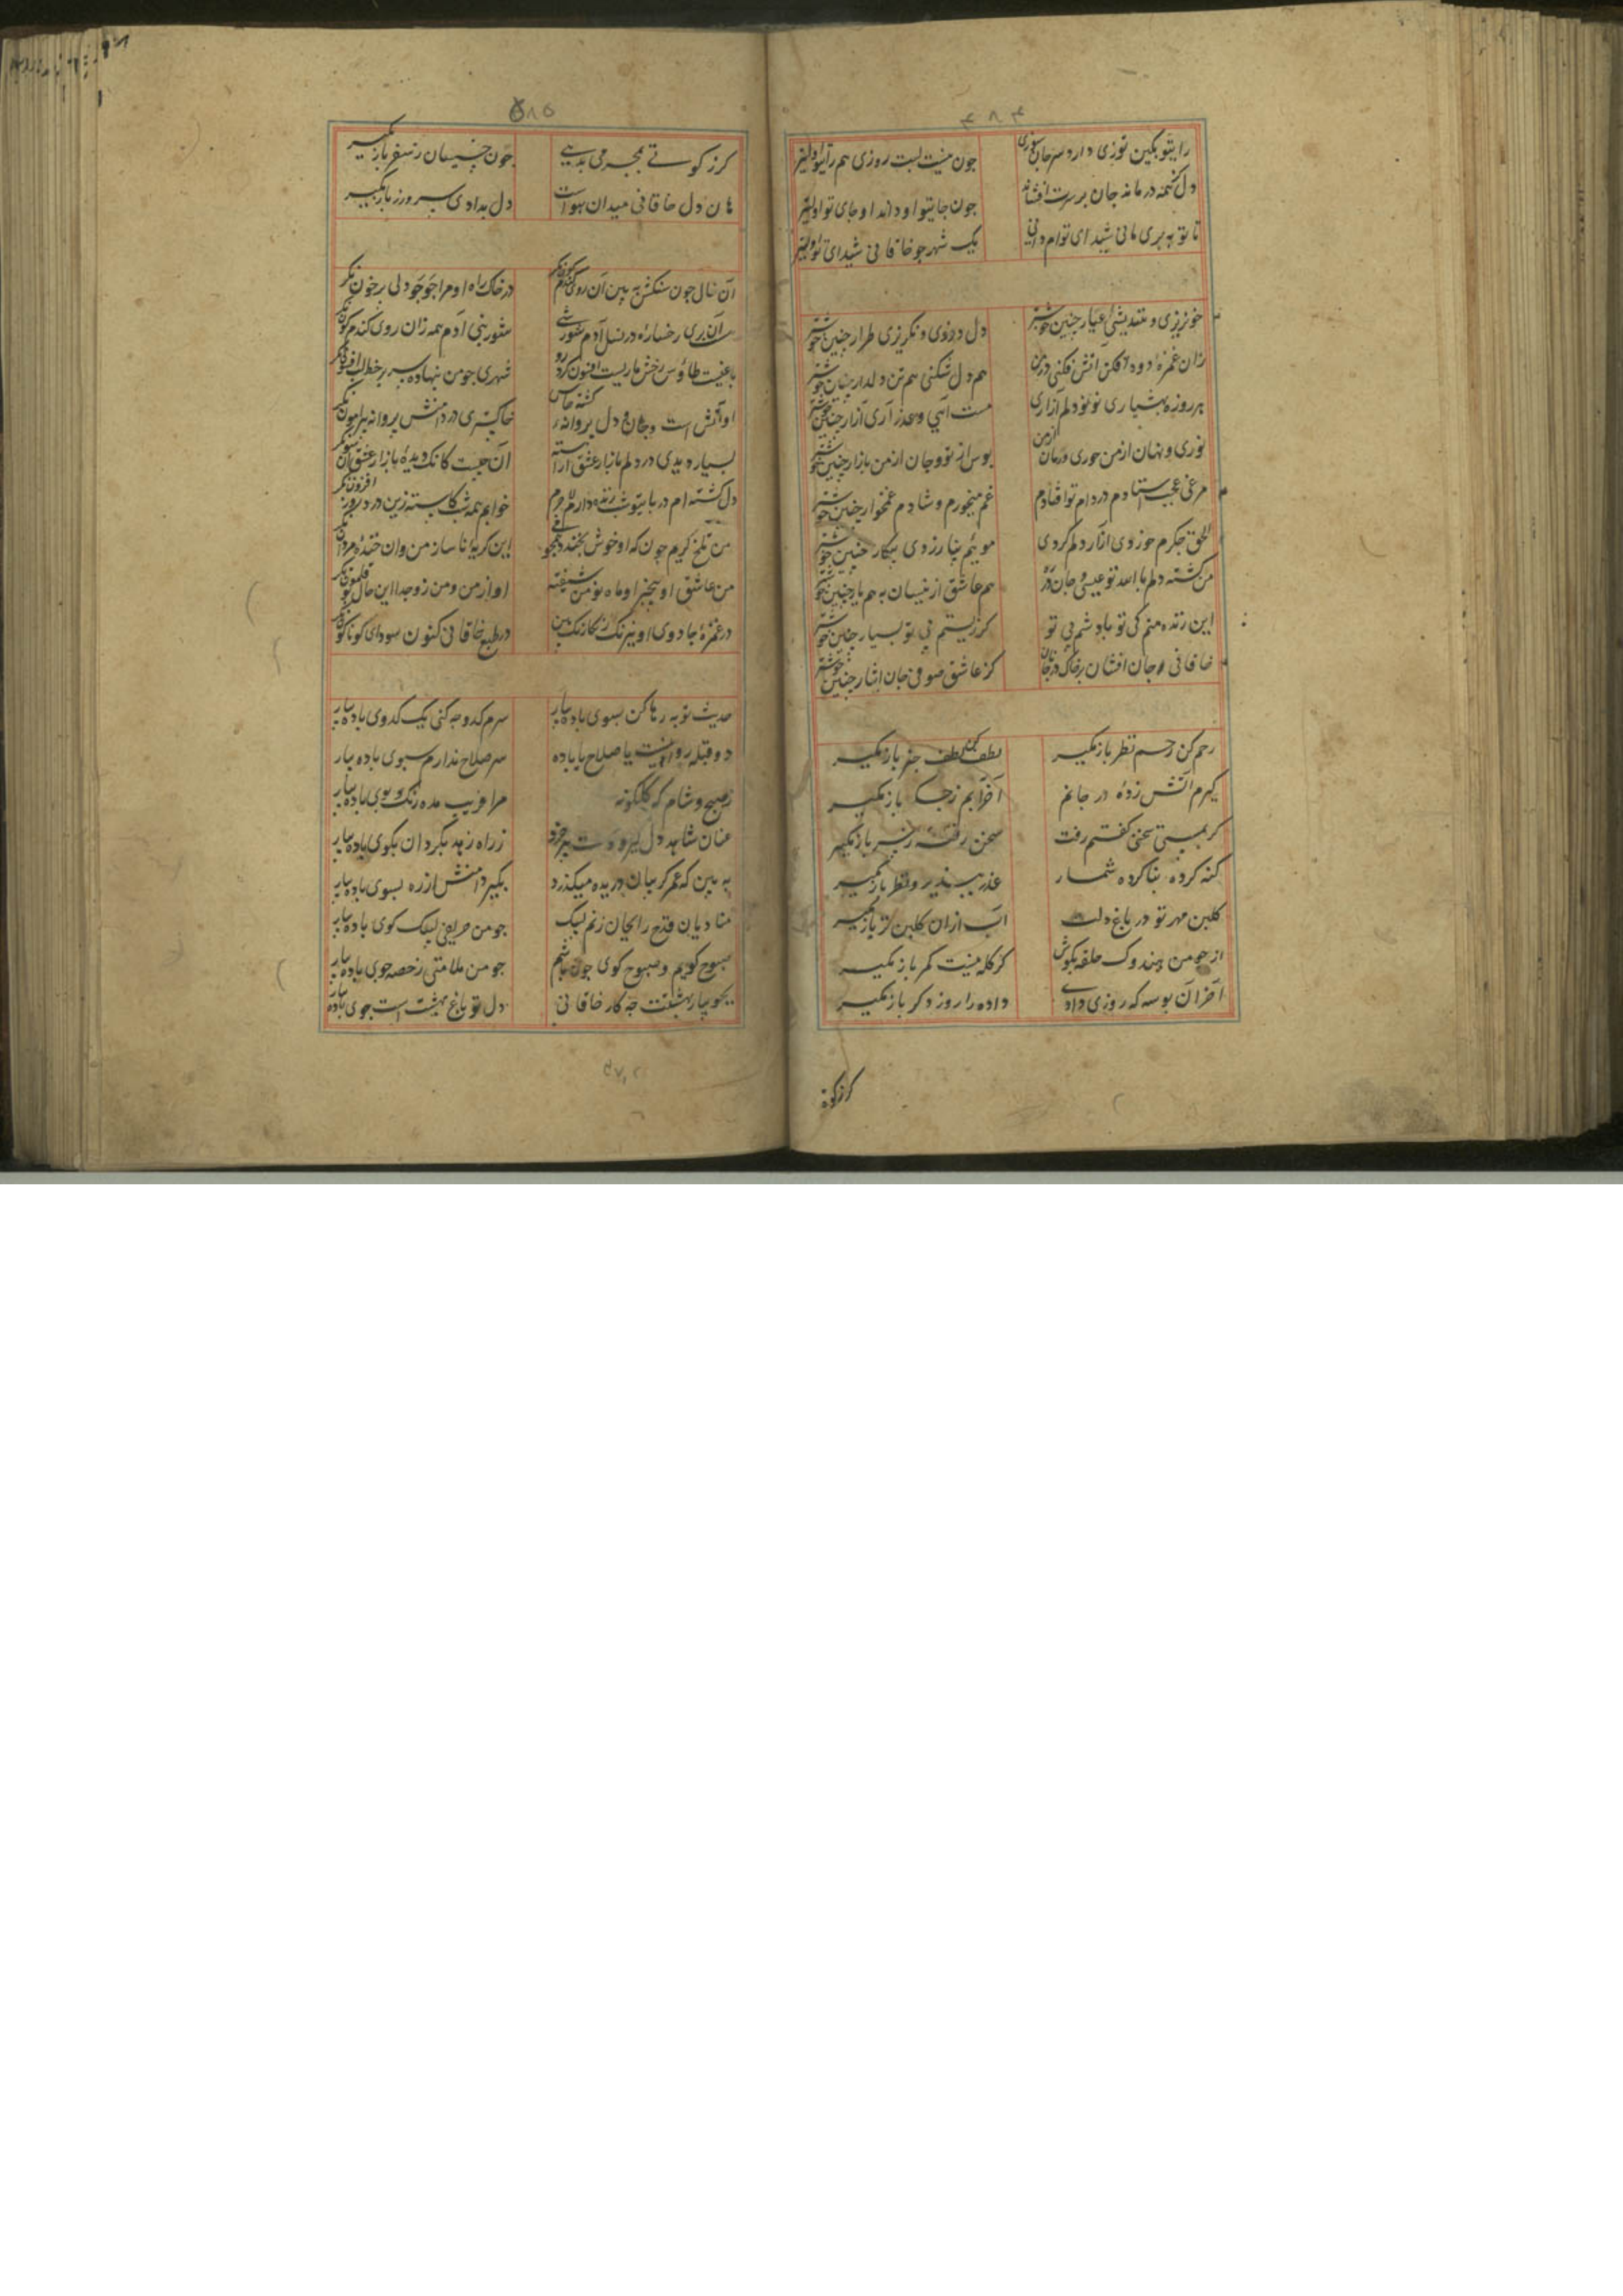 ۴۸۴
رایتو بکین توزی دارد سر جان سوزی چون نیست لبت روزی هم رایتو اولیتر
دل کنمه درمانه جان بر سرت افشانه چون جایتو او داند او جای تو اولیتر
تا تو به پری مانی شیدای توام دانی یک شهر چو خاقانی شیدای تو اولیتر
خونریزی و نندیشی عیار چنین خوشتر دل دزدی و نکریزی طرار چنین خوشتر
زان غمزه دود افکن آتش فکنی در من هم دل شکنی هم تن دلدار چنین خوشتر
هر روزه بهشیاری نو نو دلم آزاری مست آیی و عذر آری آزار چنین خوشتر
نوری و نهان از من حوری و رمان از من بوس از تو و جان از من بازار چنین خوشتر
مرغی عجب استادم در دام تو افتادم غم میخورم و شادم غمخوار چنین خوشتر
الحق جکرم خوردی آزار دلم کردی موئیم نیازردی پیکار چنین خوشتر
من کشته دلم بالله تو عیسی و جان در هم عاشق ازینسان به هم یار چنین خوشتر
این زنده منم کی تو باد شم بی تو کز زیستم بی تو بسیار چنین خوشتر
خاقانی و جان افشان بر خاک در جانان کز عاشق صوفی جان ایثار چنین خوشتر
رحم کن رحم نظر باز مکیر لطف کن لطف خبر باز مکیر
کیرم آتش زدهٔ در جانم آخر آبم ز جکر باز مکیر
کر بمستی سخنی کفتم رفت سخن رفته ز سر باز مکیر
کنه کرده بنا کرده شمار عذر بپذیر و نظر باز مکیر
کلبن مهر تو در باغ دلست آب ازان کلبن تر باز مکیر
از چو من هندوک حلقه بکوش کر کله نیست کمر باز مکیر
آخر آن بوسه که روزی دادی داده را روز دکر باز مکیر
۵۸۵
کر ز کوتی بمجرمی بدهی چون خسیسان ز سفر باز مکیر
هان دل خاقانی میدان هواست دل بدادی سر و زر باز مکیر
آن خال چون سنکش ببین آن روی کندم کون نکر در خاک راه او مرا جو جو دلی پر خون نکر
آن پری رخساره در نسل آدم شورشی شور بنی آدم همه زان روی کندم کون نکر
باغیست طاؤس رخش ماریست افسون کر درو شهری چو من بنهاده سر بر خط آن افسون نکر
او آتش است و جان و دل پروانه کشته خاکستری در دامنش پروانه پیرامون نکر
بسیار دیدی در دلم بازار عشق آراسته آن چیست کانک دیدهٔ بازار عشق اکنون نکر
دل کشته ام در پایتو شب زنده دارم لاجرم خوابم همه شب کاسته زین درد روز افزون نکر
من تلخ کریم چون که او خوش بخندد این کریهٔ ناساز من وان خندهٔ موزون نکر
من عاشق او بیخبر او ماه نو من شیفته او از من و من زو جدا این حال بوقلمون نکر
در غمزهٔ جادوی او نیرنک رنکارنک بین در طبع خاقانی کنون سودای کوناکون نکر
حدیث توبه رها کن سبوی باده بیار سرم کدو چه کنی یک کدوی باده بیار
دو قبله روا نیست یا صلاح یا باده سر صلاح ندارم سبوی باده بیار
ز صبح و شام که کلکونه مرا فریب مده رنک و بوی باده بیار
عنان شاهد دل کیر و دست پیر خرد ز راه زهد بکردان بکوی باده بیار
ببین که عمر کریبان دریده میکذرد بکیر دامنش از ره بسوی باده بیار
منادیان قدح را بجان زنم لبیک چو من حریفی لبیک کوی باده بیار
صبوح کویم و سبوح کوی چون باشم چو من ملامتی رخصه جوی باده بیار
بجویبار بهشتت چه کار خاقانی دل تو باغ بهشت است جوی باده
کر ز کوة